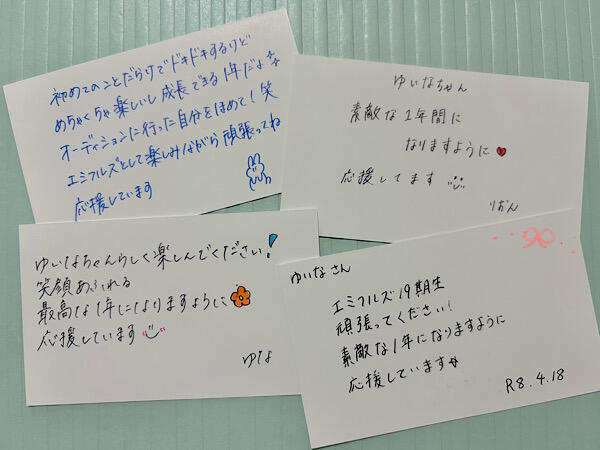 初めてのことだらけでドキドキするけど
めちゃくちゃ楽しいし成長できる1年だよ
オーディションに行った自分をほめて!笑
エミフルズとして楽しみながら頑張ってね
応援しています
ゆいなちゃん
素敵な1年間に
なりますように
応援してます
りおん
ゆいなちゃんらしく楽しんでください!
笑顔あふれる
最高な1年になりますように
応援しています
ゆな
ゆいなさん
エミフルズ19期生
頑張ってください!
素敵な1年になりますように
応援しています
R8.4.18